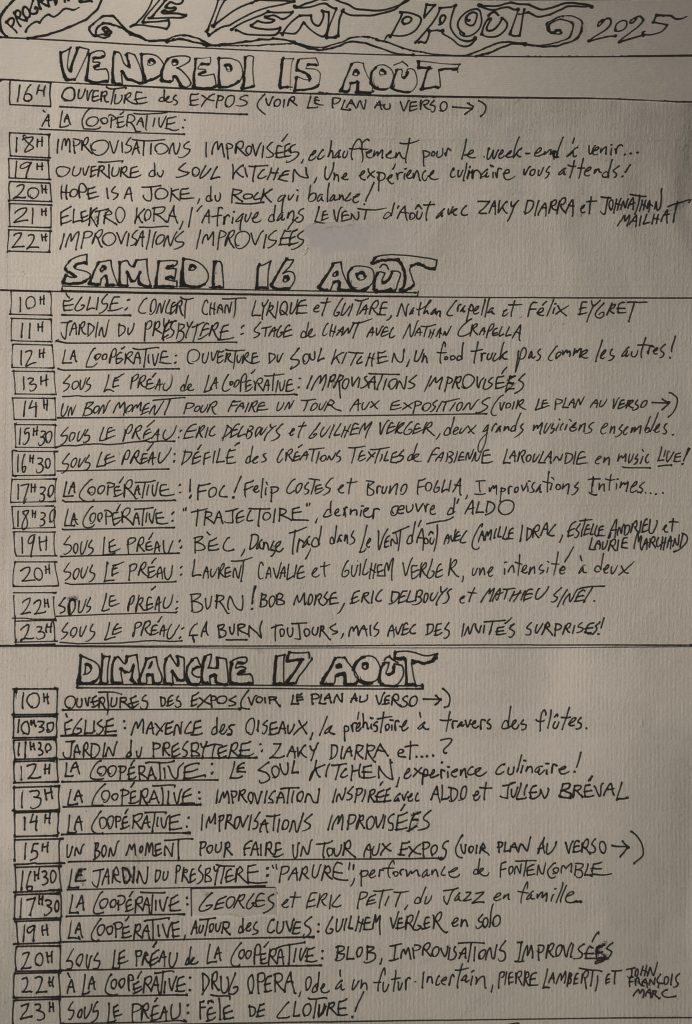 PROGRAMME
LE VENT D'AOÛT 2025
VENDREDI 15 AOÛT
16H OUVERTURE des EXPOS (VOIR LE PLAN AU VERSO →)
À LA COOPÉRATIVE:
18H IMPROVISATIONS IMPROVISÉES, echauffement pour le week-end à venir...
19H OUVERTURE du SOUL KITCHEN, Une expérience culinaire vous attends!
20H HOPE IS A JOKE, du ROCK qui balance!
21H ELEKTRO KORA, l'Afrique dans LE VENT d'Août avec ZAKY DIARRA et JOHNATHAN MAILHAT
22H IMPROVISATIONS IMPROVISÉES
SAMEDI 16 AOÛT
10H ÈGLISE: CONCERT CHANT LYRIQUE et GUITARE, Nathan Crapella et Félix EYGRET
11H JARDIN DU PRESBYTERE: STAGE de CHANT AVEC NATHAN CRAPELLA
12H LA COOPÉRATIVE: OUVERTURE DU SOUL KITCHEN, un food truck pas comme les autres!
13H SOUS LE PRÉAU de LA COOPÉRATIVE: IMPROVISATIONS IMPROVISÉES
14H UN BON MOMENT POUR FAIRE UN TOUR AUX EXPOSITIONS (VOIR LE PLAN AU VERSO →)
15H30 SOUS LE PRÉAU: ERIC DELBOUYS et GUILHEM VERGER, deux grands musiciens ensembles.
16H30 SOUS LE PRÉAU: DÉFILÉ des CRÉATIONS TEXTILES de FABIENNE LAROULANDIE en music LIVE!
17H30 LA COOPÉRATIVE: !FOC! Felip COSTES et BRUNO FOGLIA, Improvisations Intimes....
18H30 LA COOPÉRATIVE: "TRAJECTOIRE", dernier œuvre d'ALDO
19H SOUS LE PRÉAU: BÈC, Danse Trad dans Le Vent d'Août avec CAMILLE IDRAC, ESTELLE ANDRIEU et LAURIE MARCHAND
20H SOUS LE PRÉAU: LAURENT CAVALIE et GUILHEM VERGER, une intensité à deux
22H SOUS LE PRÉAU: BURN! BOB MORSE, ERIC DELBOUYS et MATHIEU SINET.
23H SOUS LE PRÉAU: ÇA BURN TOUJOURS, MAIS AVEC DES INVITÉS SURPRISES!
DIMANCHE 17 AOÛT
10H OUVERTURES DES EXPOS (VOIR LE PLAN AU VERSO →)
10H30 ÈGLISE: MAXENCE des OISEAUX, la préhistoire à travers des flûtes.
11H30 JARDIN du PRESBYTERE: ZAKY DIARRA et....?
12H LA COOPÉRATIVE: LE SOUL KITCHEN, expérience culinaire!
13H LA COOPÉRATIVE: IMPROVISATION INSPIRÉE avec ALDO et JULIEN BRÉVAL
14H LA COOPÉRATIVE: IMPROVISATIONS IMPROVISÉES
15H UN BON MOMENT POUR FAIRE UN TOUR AUX EXPOS (VOIR PLAN AU VERSO →)
16H30 LE JARDIN DU PRESBYTERE: "PARURE", performance de FONTENCOMBLE
17H30 LA COOPÉRATIVE: GEORGES et ERIC PETIT, du Jazz en famille
19H LA COOPÉRATIVE, AUTOUR DES CUVES: GUILHEM VERGER en solo
20H SOUS LE PRÉAU de LA COOPÉRATIVE: BLOB, IMPROVISATIONS IMPROVISÉES
22H À LA COOPÉRATIVE: DRUG OPERA, Ode à un futur incertain, PIERRE LAMBERTI et JOHN FRANÇOIS MARC
23H SOUS LE PRÉAU: FÊTE DE CLOTURE!